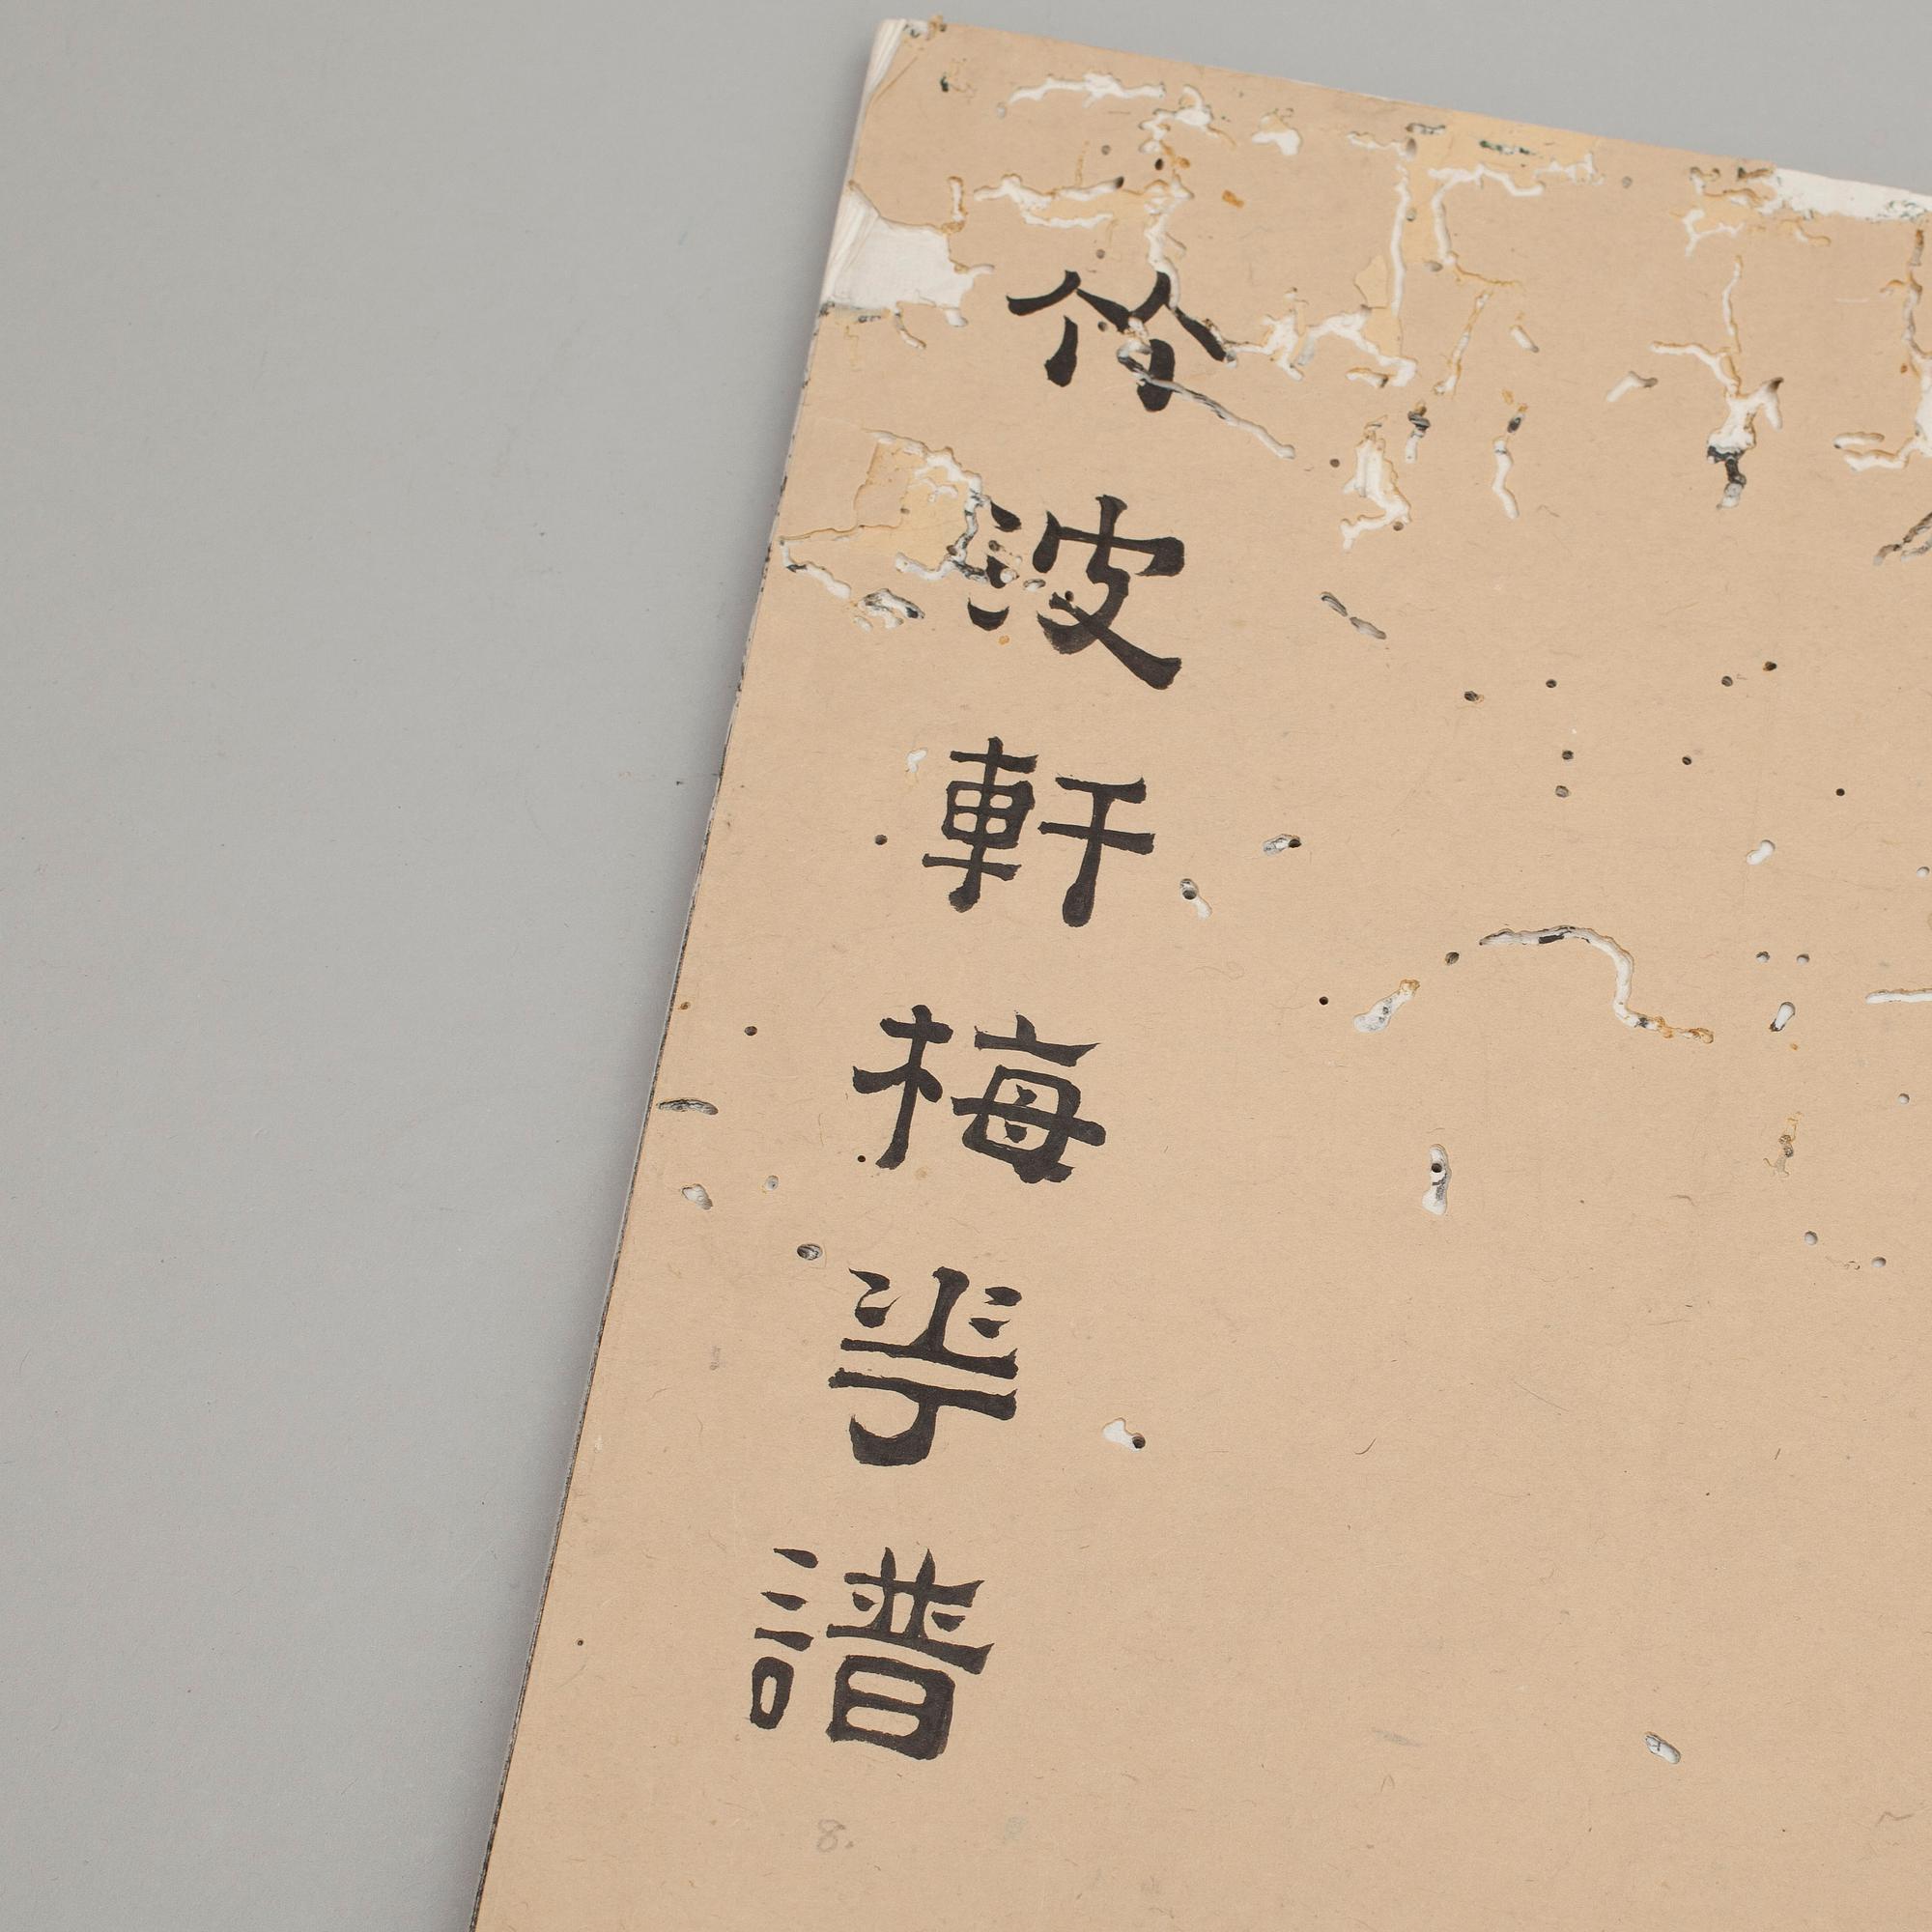 竹波軒梅華譜
8.